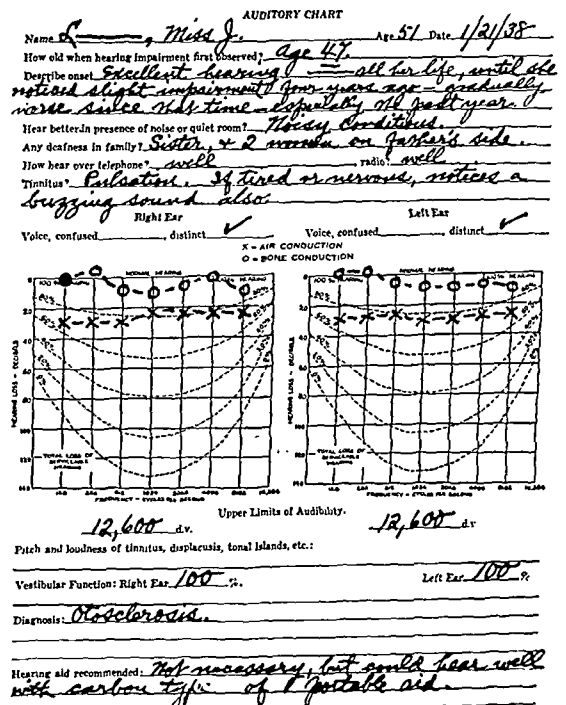 AUDITORY CHART
Name L——, Miss J. Age 51 Date 1/21/38
How old when hearing impairment first observed? Age 47.
Describe onset Excellent hearing all her life, until she
noticed slight impairment four years ago - gradually
worse since that time - especially the past year.
Hear better in presence of noise or quiet room? Noisy conditions.
Any deafness in family? Sister, & 2 women on Father's side.
How hear over telephone? well radio? well
Tinnitus? Pulsation. If tired or nervous, notices a
buzzing sound also.
Right Ear Left Ear
Voice, confused distinct ✓ Voice, confused distinct ✓
X - AIR CONDUCTION
O - BONE CONDUCTION
NORMAL HEARING NORMAL HEARING
HEARING LOSS - DECIBELS HEARING LOSS - DECIBELS
TOTAL LOSS OF TOTAL LOSS OF
SERVICEABLE SERVICEABLE
HEARING HEARING
FREQUENCY - CYCLES PER SECOND FREQUENCY - CYCLES PER SECOND
Upper Limits of Audibility.
12,600 d.v. 12,600 d.v
Pitch and loudness of tinnitus, displacusis, tonal islands, etc.:
Vestibular Function: Right Ear 100 %. Left Ear 100 %
Diagnosis: Otosclerosis.
Hearing aid recommended: Not necessary, but could hear well
with carbon type of portable aid.